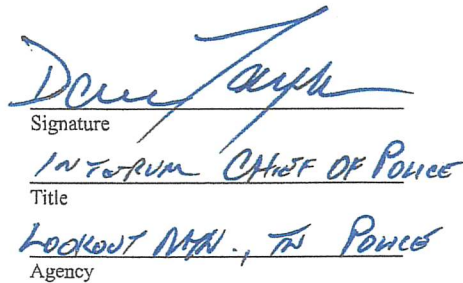 Signature
INTERUM CHIEF OF POLICE
Title
LOOKOUT MTN., TN POLICE
Agency